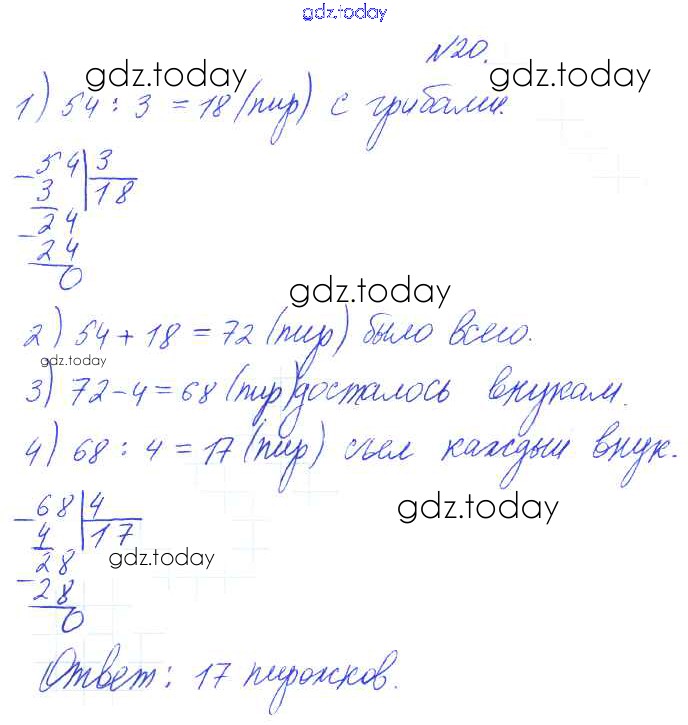 gdz.today
№20.
gdz.today
1) 54 : 3 = 18 (пир) с грибами.
54 3
3 18
24
24
0
gdz.today
2) 54 + 18 = 72 (пир) было всего.
gdz.today
3) 72 - 4 = 68 (пир) досталось внукам.
4) 68 : 4 = 17 (пир) съел каждый внук.
gdz.today
68 4
4 17
gdz.today
28
28
0
Ответ: 17 пирожков.